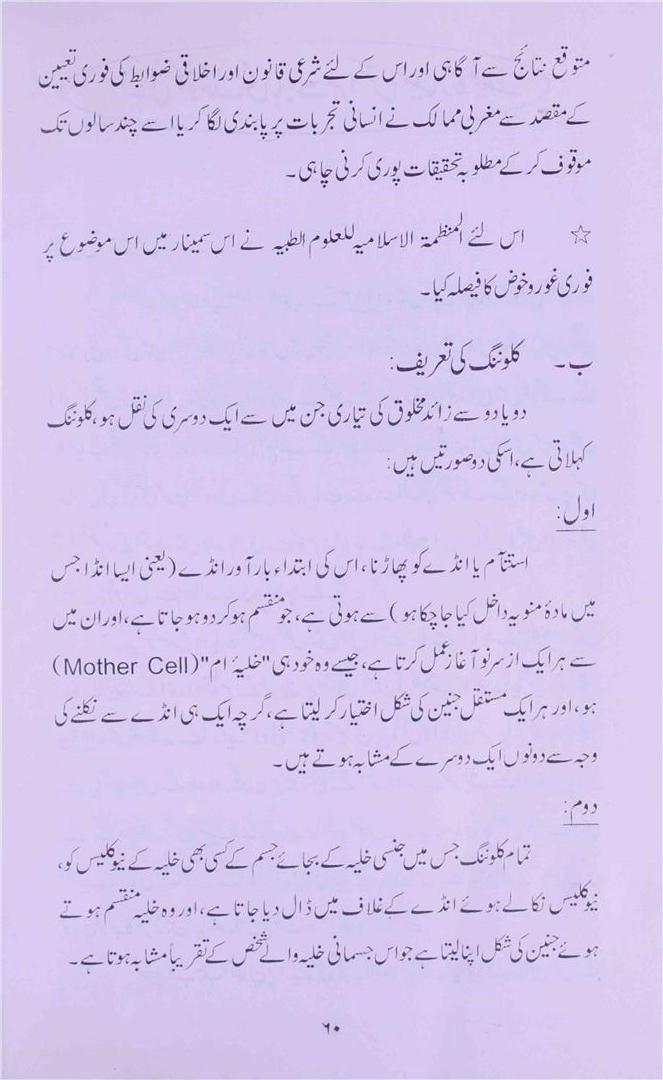 متوقع نتائج سے آگاہی اور اس کے لئے شرعی قانون اور اخلاقی ضوابط کی فوری تعیین
کے مقصد سے مغربی ممالک نے انسانی تجربات پر پابندی لگا کر یا اسے چند سالوں تک
موقوف کر کے مطلوبہ تحقیقات پوری کرنی چاہی۔
☆ اس لئے المنظمۃ الاسلامیہ للعلوم الطبیہ نے اس سمینار میں اس موضوع پر
فوری غور و خوض کا فیصلہ کیا۔
ب۔ کلوننگ کی تعریف:
دو یا دو سے زائد مخلوق کی تیاری جن میں سے ایک دوسری کی نقل ہو، کلوننگ
کہلاتی ہے، اسکی دو صورتیں ہیں:
اول:
استتآم یا انڈے کو پھاڑنا، اس کی ابتداء بارآور انڈے (یعنی ایسا انڈا جس
میں مادۂ منویہ داخل کیا جا چکا ہو) سے ہوتی ہے، جو منقسم ہو کر دو ہو جاتا ہے، اور ان میں
سے ہر ایک از سر نو آغاز عمل کرتا ہے، جیسے وہ خود ہی "خلیۂ ام" (Mother Cell)
ہو، اور ہر ایک مستقل جنین کی شکل اختیار کر لیتا ہے، گرچہ ایک ہی انڈے سے نکلنے کی
وجہ سے دونوں ایک دوسرے کے مشابہ ہوتے ہیں۔
دوم:
تمام کلوننگ جس میں جنسی خلیہ کے بجائے جسم کے کسی بھی خلیہ کے نیوکلیس کو،
نیوکلیس نکالے ہوئے انڈے کے غلاف میں ڈال دیا جاتا ہے، اور وہ خلیہ منقسم ہوتے
ہوئے جنین کی شکل اپنا لیتا ہے جو اس جسمانی خلیہ والے شخص کے تقریباً مشابہ ہوتا ہے۔
۶۰